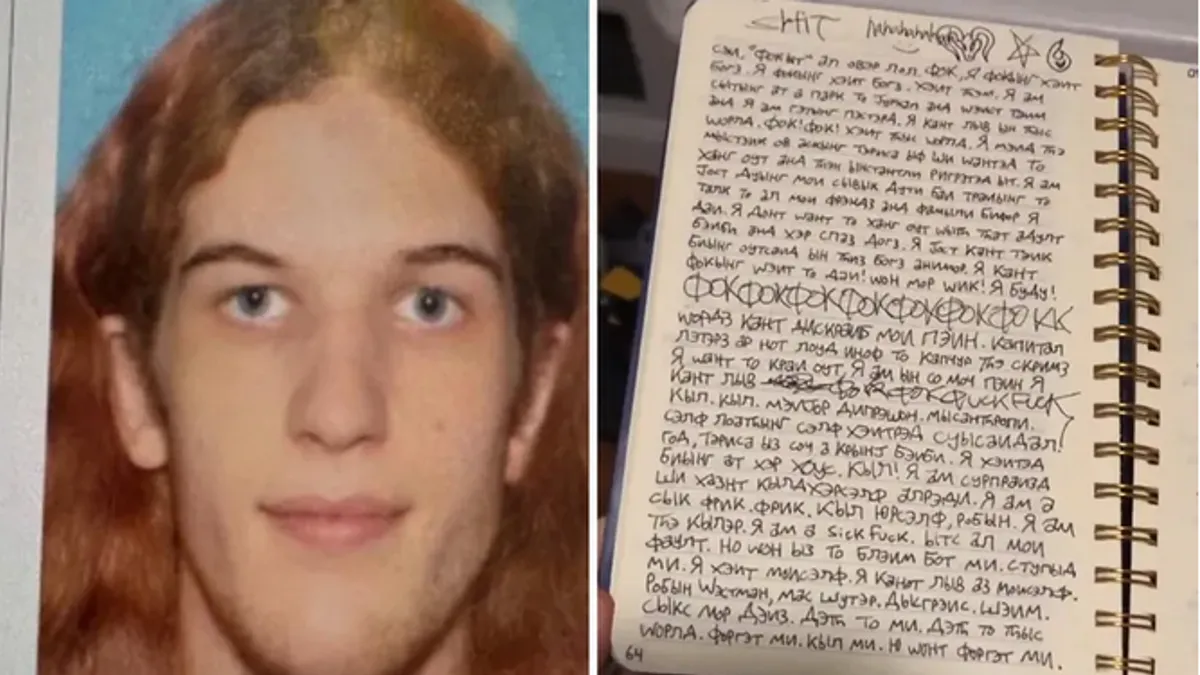 SHIT hahahahahah
СЭИ, "ФОКЫТ" АЛ ОВЭР ЛОЛ. ФОК, Я ФОКЫНГ ХЭИТ
БОГЗ. Я ФОКЫНГ ХЭИТ БОГЗ. ХЭИТ ТҺЭМ. Я АМ
СЫТЫНГ АТ А ПАРК ТО
АНД Я АМ ГЭТЫНГ Я КАНТ ЛЫВ ЫН ТҺЫС
WОРЛД. ФОК! ФОК! ХЭИТ ТҺЫС WОРЛД. Я МЭЙД ТҺЭ
МЫСТЭИК ОВ АСКЫНГ ТЭРИСА ЫФ ШИ WАНТЭД ТО
ХАНГ ОУТ АНД ТҺЭН ЫНСТАНТЛИ РИГРЭТЭД ЫТ. Я АМ
JОСТ ДУЫНГ МОИ СЫВЫК ДУТИ БАИ ТРАИЫНГ ТО
ТАЛК ТО АЛ МОИ ФРЭНДЗ АНД ФАМЫЛИ БИФОР Я
ДАИ. Я ДОНТ WАНТ ТО ХАНГ ОУТ WЫТҺ ТҺАТ АДУЛТ
БЭИБИ АНД ХЭР СПАЗ ДОГЗ. Я JОСТ КАНТ ТЭИК
БИЫНГ ОУТСАИД ЫН ТҺИЗ БОГЗ АНИМОР. Я КАНТ
ФОКЫНГ WЭИТ ТО ДАИ! WОН МОР WИК! Я БУДУ!
ФОКФОКФОКФОКФОКФОКФОКК
WОРДЗ КАНТ ДИСКРАИБ МОИ ПЭИН. КАПИТАЛ
ЛЭТЭРЗ АР НОТ ЛОУД ИНОФ ТО КАПЧУР ТҺЭ СКРИМЗ
Я WАНТ ТО КРАИ ОУТ. Я АМ ЫН СО МОЧ ПЭИН Я
КАНТ ЛЫВ FUCKFUCK
КЫЛ. КЫЛ. МЭИJОР ДИПРЭШОН. МЫСАНТҺРОПИ.
СЭЛФ ЛОАТҺЫНГ СЭЛФ ХЭИТРЭД СУЫСАИДАЛ!
ГОД, ТЭРИСА ЫЗ СОЧ А КРЫНJ БЭИБИ. Я ХЭИТЭД
БИЫНГ АТ ХЭР ХОУС. КЫЛ! Я АМ СУРПРАИЗД
ШИ ХАЗНТ КЫЛД ХЭРСЭЛФ АЛРЭДИ. Я АМ А
СЫК ФРИК. ФРИК. КЫЛ ЮРСЭЛФ, РОБЫН. Я АМ
ТҺЭ КЫЛЭР. Я АМ А SICK FUCK. ЫТС АЛ МОИ
ФАУЛТ. НО WОН ЫЗ ТО БЛЭИМ БОТ МИ. СТУПЫД
МИ. Я ХЭИТ МОИСЭЛФ. Я КАНОТ ЛЫВ АЗ МОИСЭЛФ.
РОБЫН WЭСТМАН, МАС ШУТЭР. ДЫСГРЭИС. ШЭИМ.
СЫКС МОР ДЭИЗ. ДЭТҺ ТО МИ. ДЭТҺ ТО ТҺЫС
WОРЛД. ФОРГЭТ МИ. КЫЛ МИ. Ю WОНТ ФОРГЭТ МИ.
64